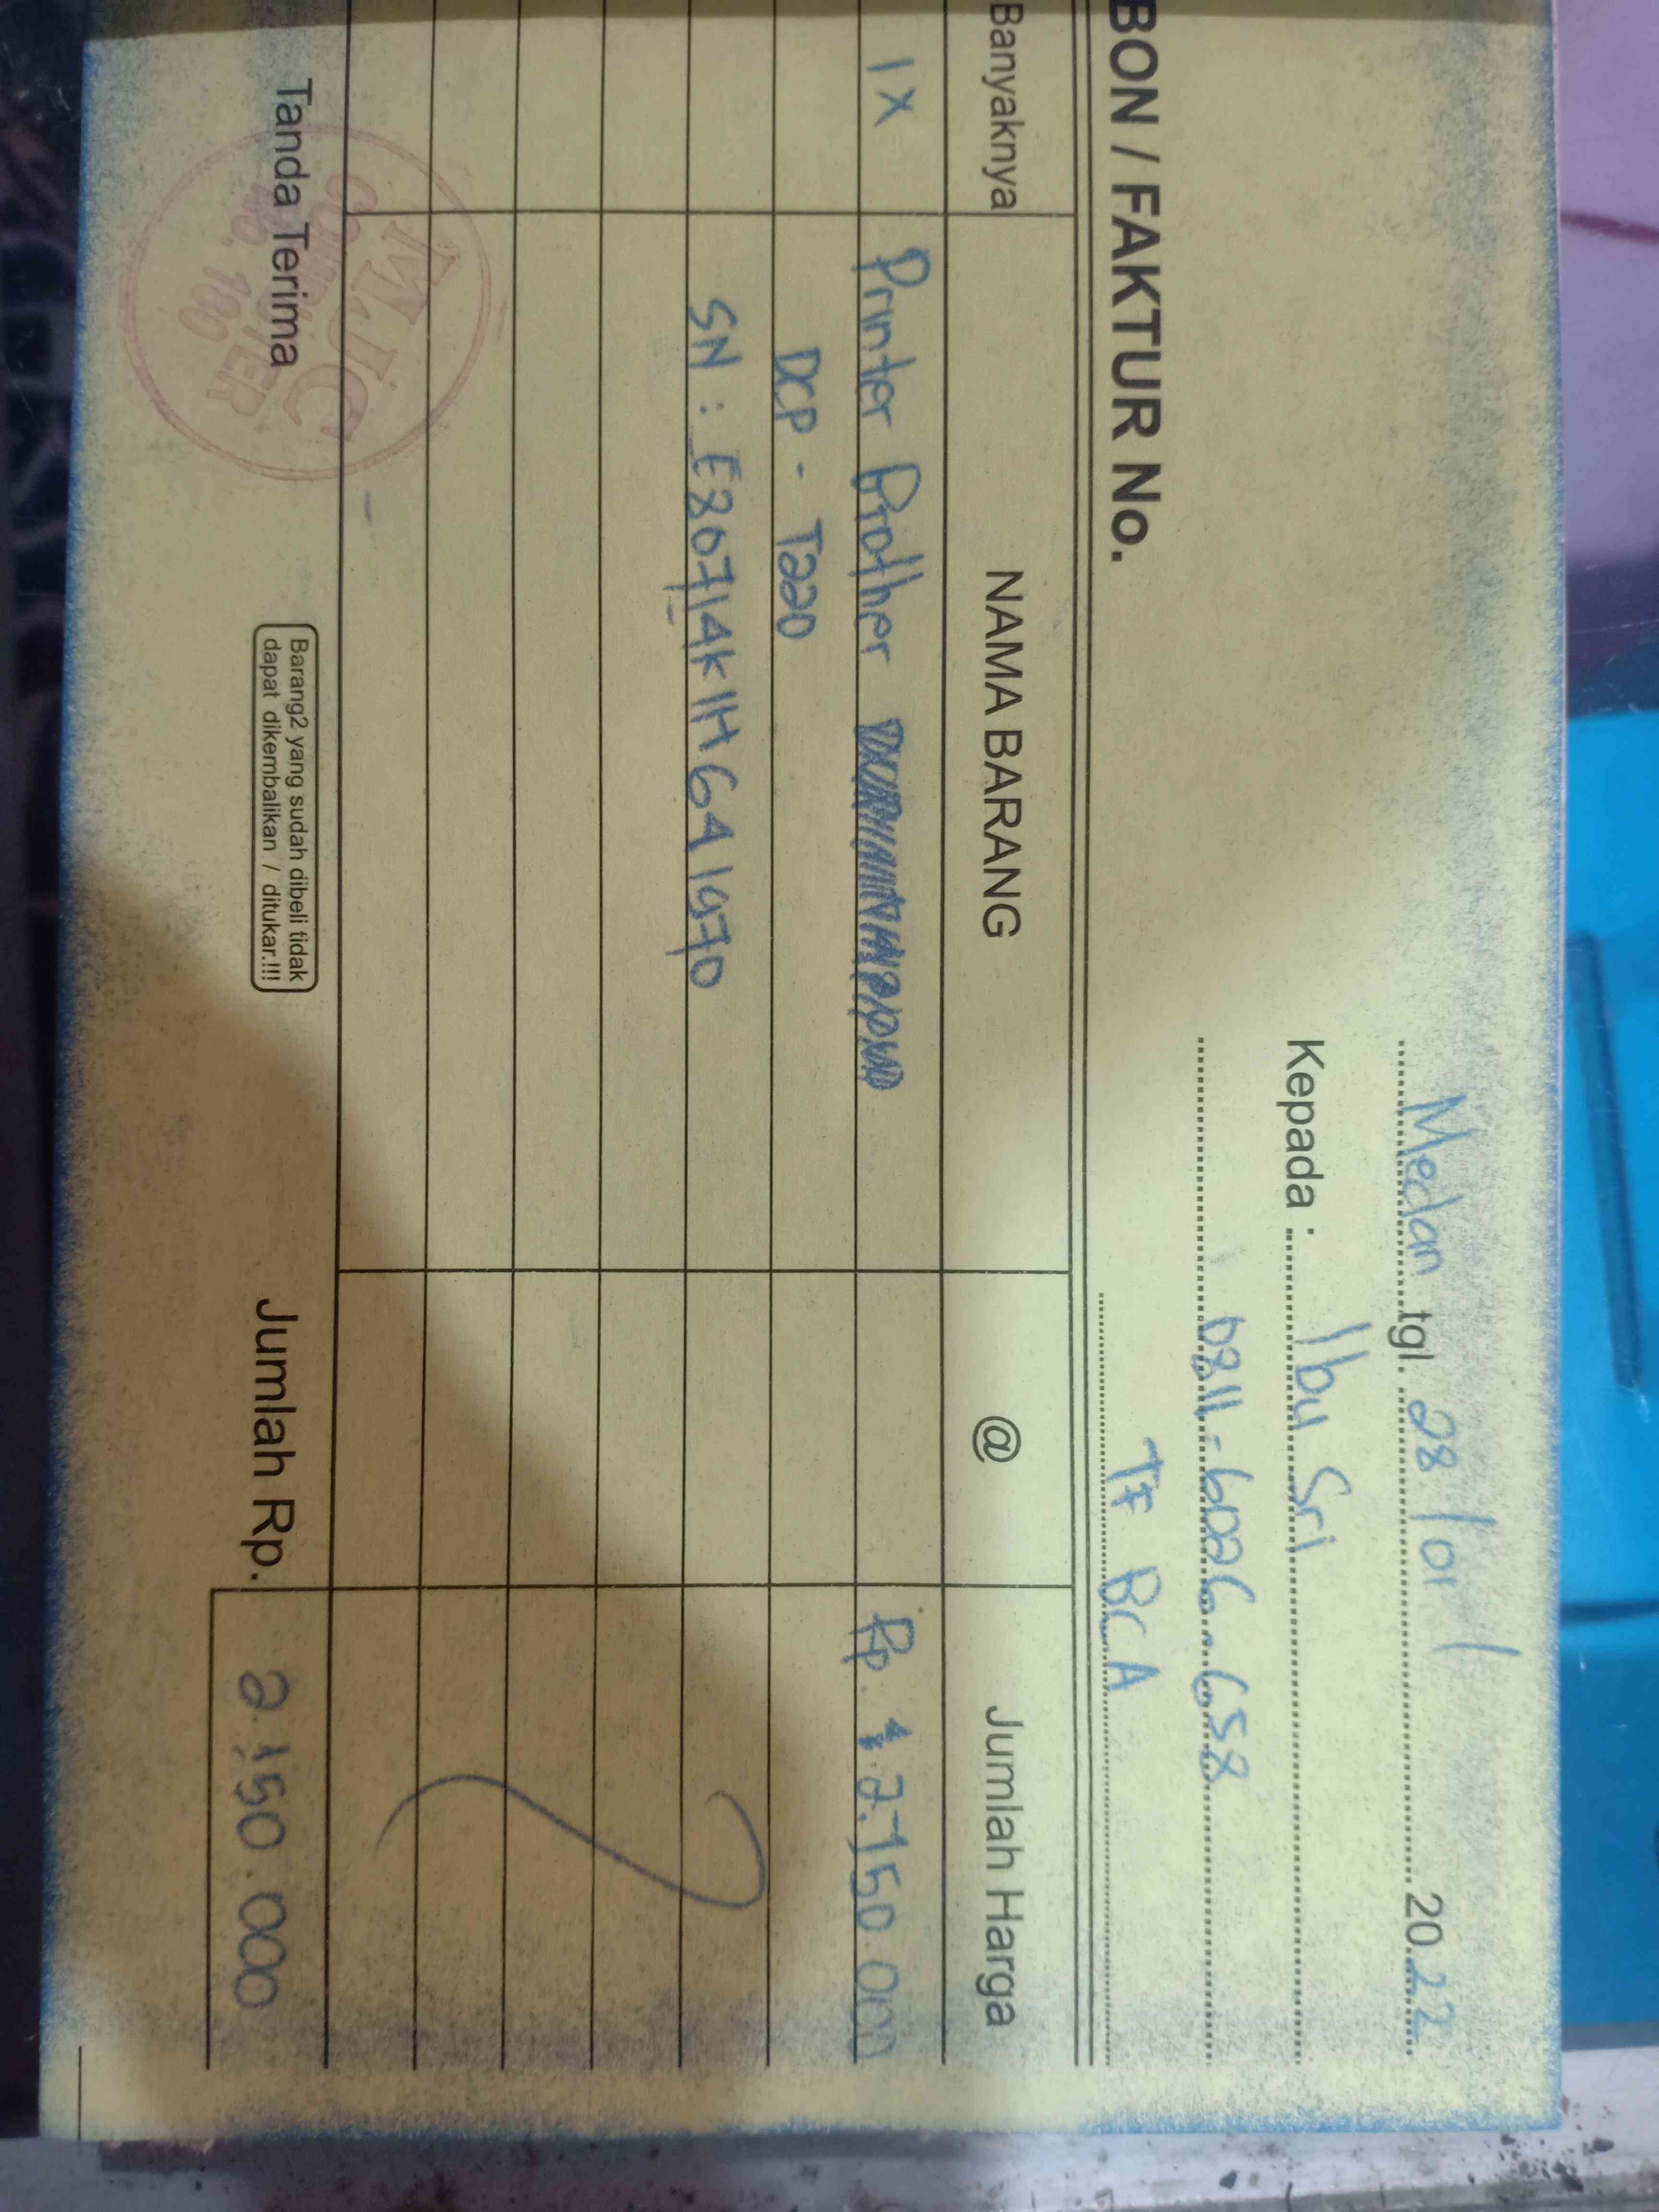 Medan tgl. 28/01/ 2022
Kepada : Ibu Sri
0811-6026-658
TF BCA
BON / FAKTUR No.
Banyaknya NAMA BARANG @ Jumlah Harga
1x Printer Brother Rp 2.150.000
DCP - T220
SN : E80714K1H641970
Tanda Terima
Barang2 yang sudah dibeli tidak
dapat dikembalikan / ditukar.!!!
Jumlah Rp. 2.150.000
MJC